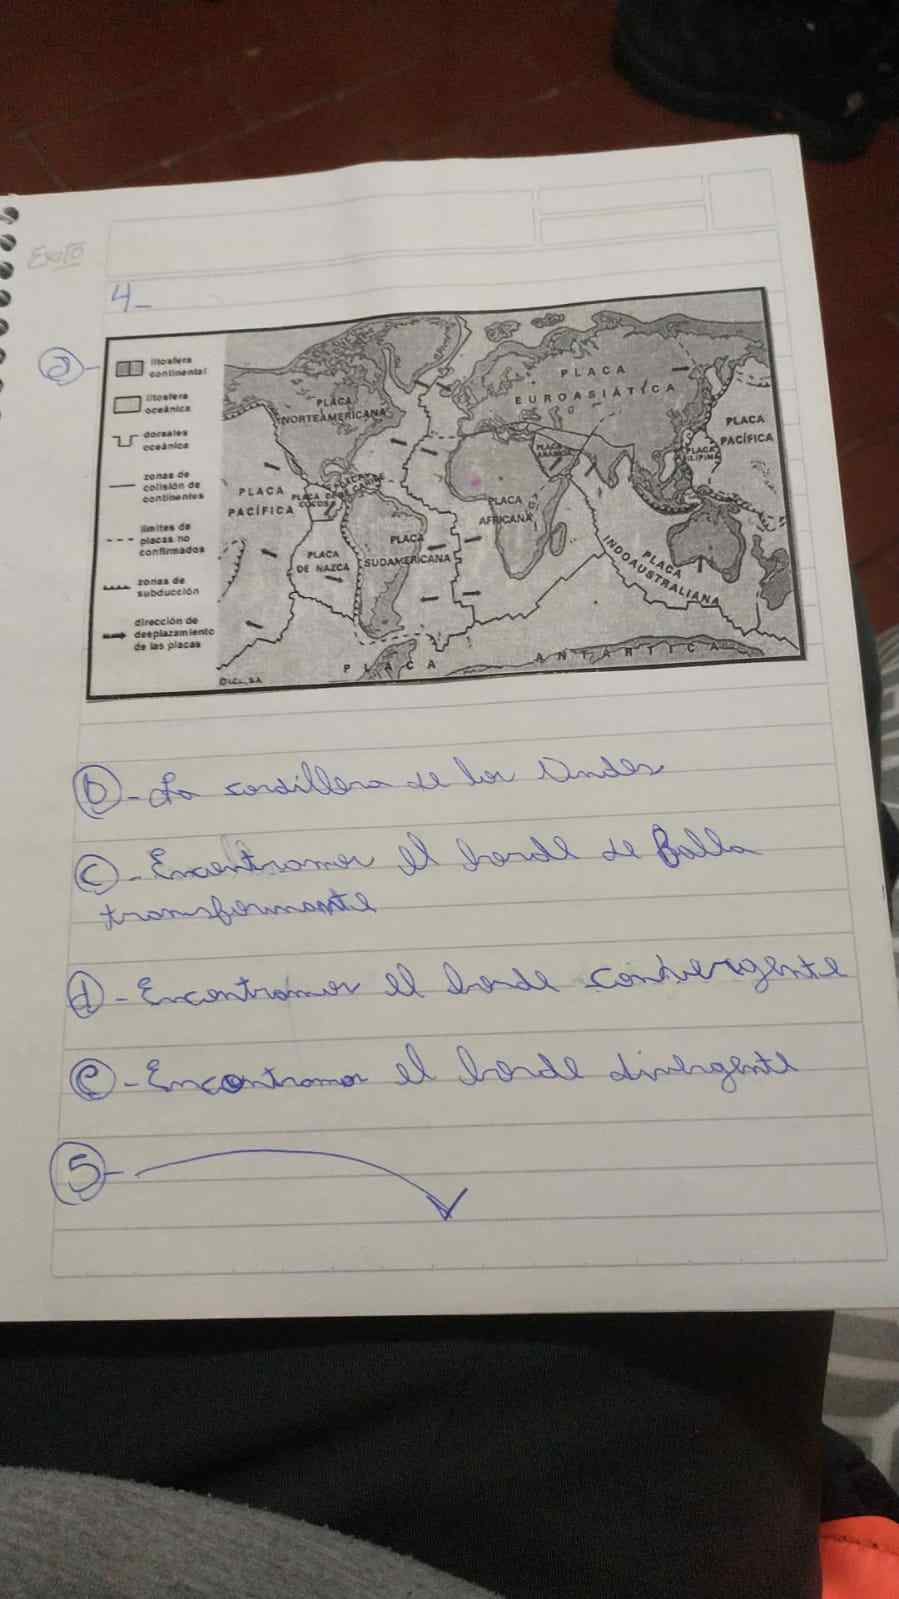 Exito
4_
a-
litosfera
continental
litosfera
oceánica
dorsales
oceánica
zonas de
colisión de
continentes
límites de
placas no
confirmados
zonas de
subducción
dirección de
desplazamiento
de las placas
©LCL, S.A.
PLACA
NORTEAMERICANA
PLACA
EUROASIÁTICA
PLACA
PACÍFICA
PLACA
ARÁBICA
PLACA
FILIPINA
PLACA
PACÍFICA
PLACA DE
COCOS
PLACA
CARIBE
PLACA
AFRICANA
PLACA
DE NAZCA
PLACA
SUDAMERICANA
PLACA
INDOAUSTRALIANA
PLACA ANTÁRTICA
b-La cordillera de los Andes
c-Encontramos el borde de Falla
transformante
d-Encontramos el borde convergente
e-Encontramos el borde divergente
5-